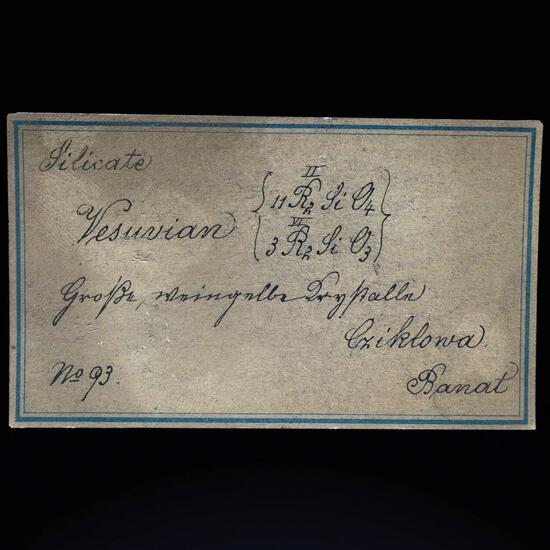 Silicate
Vesuvian { 11 R₂ Si O₄
II
{ 3 R₂ Si O₃
VI
Große, weingelbe Krystalle
Cziklowa.
No 93.
Banat